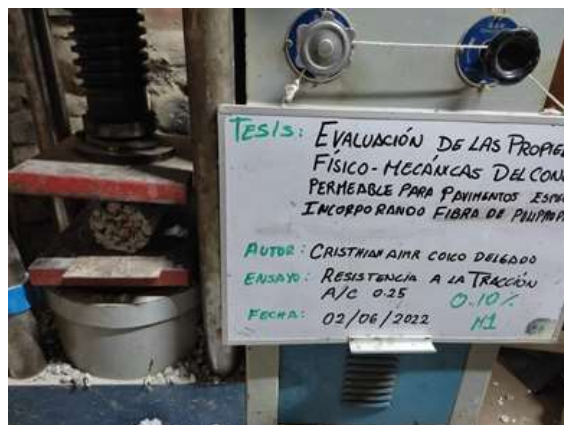 TESIS: EVALUACIÓN DE LAS PROPIE
FÍSICO-MECÁNICAS DEL CON
PERMEABLE PARA PAVIMENTOS ESPE
INCORPORANDO FIBRA DE POLIPROP
AUTOR: CRISTHIAN AIMR COICO DELGADO
ENSAYO: RESISTENCIA A LA TRACCIÓN
A/C 0.25 0.10%
FECHA: 02/06/2022 M1